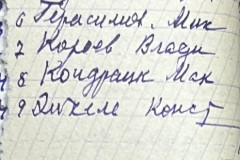 6 Герасимов. Мик
7 Короев Влади
8 Кондрацк Мак
9 Конст